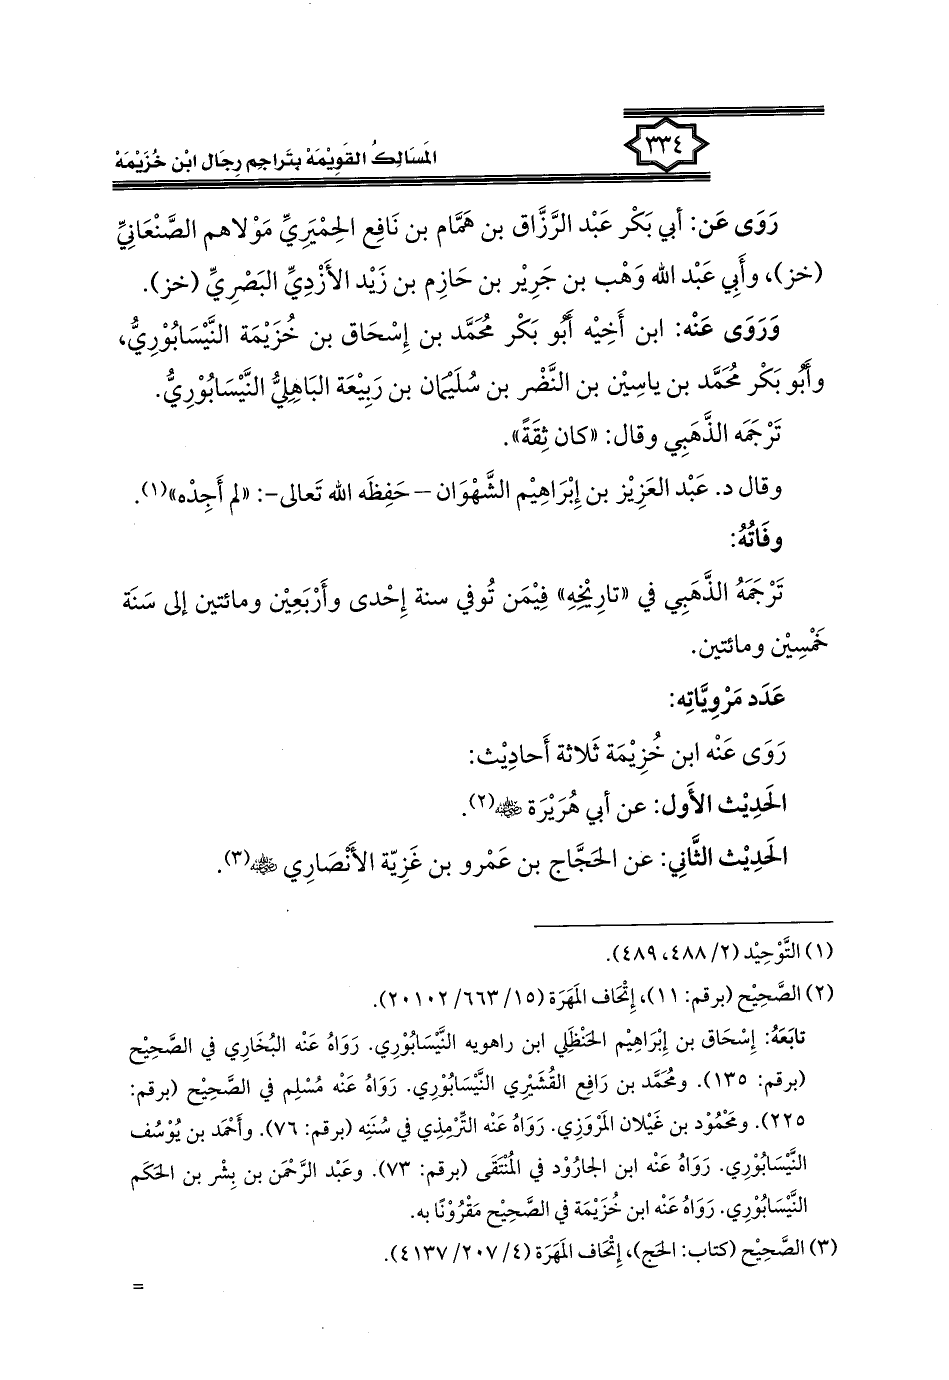 ٣٣٤
المسالك القويمة بتراجم رجال ابن خزيمة
رَوَى عَن: أبي بَكْر عَبْد الرَّزَّاق بن هَمَّام بن نَافِع الحِمْيَرِيِّ مَوْلاهم الصَّنْعَانِيِّ
(خز)، وأَبِي عَبْد الله وَهْب بن جَرِيْر بن حَازِم بن زَيْد الأَزْدِيِّ البَصْرِيِّ (خز).
وَرَوَى عَنْه: ابن أَخِيْه أَبُو بَكْر مُحَمَّد بن إِسْحَاق بن خُزَيْمَة النَّيْسَابُوْرِيُّ،
وأَبُو بَكْر مُحَمَّد بن ياسِيْن بن النَّضْر بن سُلَيْمان بن رَبِيْعَة البَاهِلِيُّ النَّيْسَابُوْرِيُّ.
تَرْجَمَه الذَّهَبِي وقال: «كان ثِقَةً».
وقال د. عَبْد العَزِيْز بن إِبْرَاهِيْم الشَّهْوَان – حَفِظَه الله تَعالى-: «لم أَجِدْه»(١).
وفَاتُهُ:
تَرْجَمَهُ الذَّهَبِي في «تارِيْخِهِ» فِيْمَن تُوفي سنة إِحْدى وأَرْبَعِيْن ومائتين إلى سَنَة
خَمْسِيْن ومائتين.
عَدَد مَرْوِيَّاتِه:
رَوَى عَنْه ابن خُزِيْمَة ثَلاثة أَحادِيْث:
الحَدِيْث الأَول: عن أبي هُرَيْرَة ﵁(٢).
الحَدِيْث الثَّاني: عن الحَجَّاج بن عَمْرو بن غَزِيّة الأَنْصَارِي ﵁(٣).
(١) التَّوْحِيْد (٢/ ٤٨٨، ٤٨٩).
(٢) الصَّحِيْح (برقم: ١١)، إِتْحَاف المَهَرَة (١٥/ ٦٦٣/ ٢٠١٠٢).
تابَعَهُ: إِسْحَاق بن إِبْرَاهِيْم الحَنْظَلِي ابن راهويه النَّيْسَابُوْرِي. رَوَاهُ عَنْه البُخَارِي في الصَّحِيْح
(برقم: ١٣٥). ومُحَمَّد بن رَافِع القُشَيْرِي النَّيْسَابُوْرِي. رَوَاهُ عَنْه مُسْلِم في الصَّحِيْح (برقم:
٢٢٥). ومَحْمُوْد بن غَيْلان المَرْوَزِي. رَوَاهُ عَنْه التِّرْمِذِي في سُنَنِه (برقم: ٧٦). وأَحْمَد بن يُوْسُف
النَّيْسَابُوْرِي. رَوَاهُ عَنْه ابن الجارُوْد في المُنْتَقَى (برقم: ٧٣). وعَبْد الرَّحْمَن بن بِشْر بن الحَكَم
النَّيْسَابُوْرِي. رَوَاهُ عَنْه ابن خُزَيْمَة في الصَّحِيْح مَقْرُوْنًا به.
(٣) الصَّحِيْح (كتاب: الحَج)، إِتْحَاف المَهَرَة (٤/ ٢٠٧/ ٤١٣٧).
=